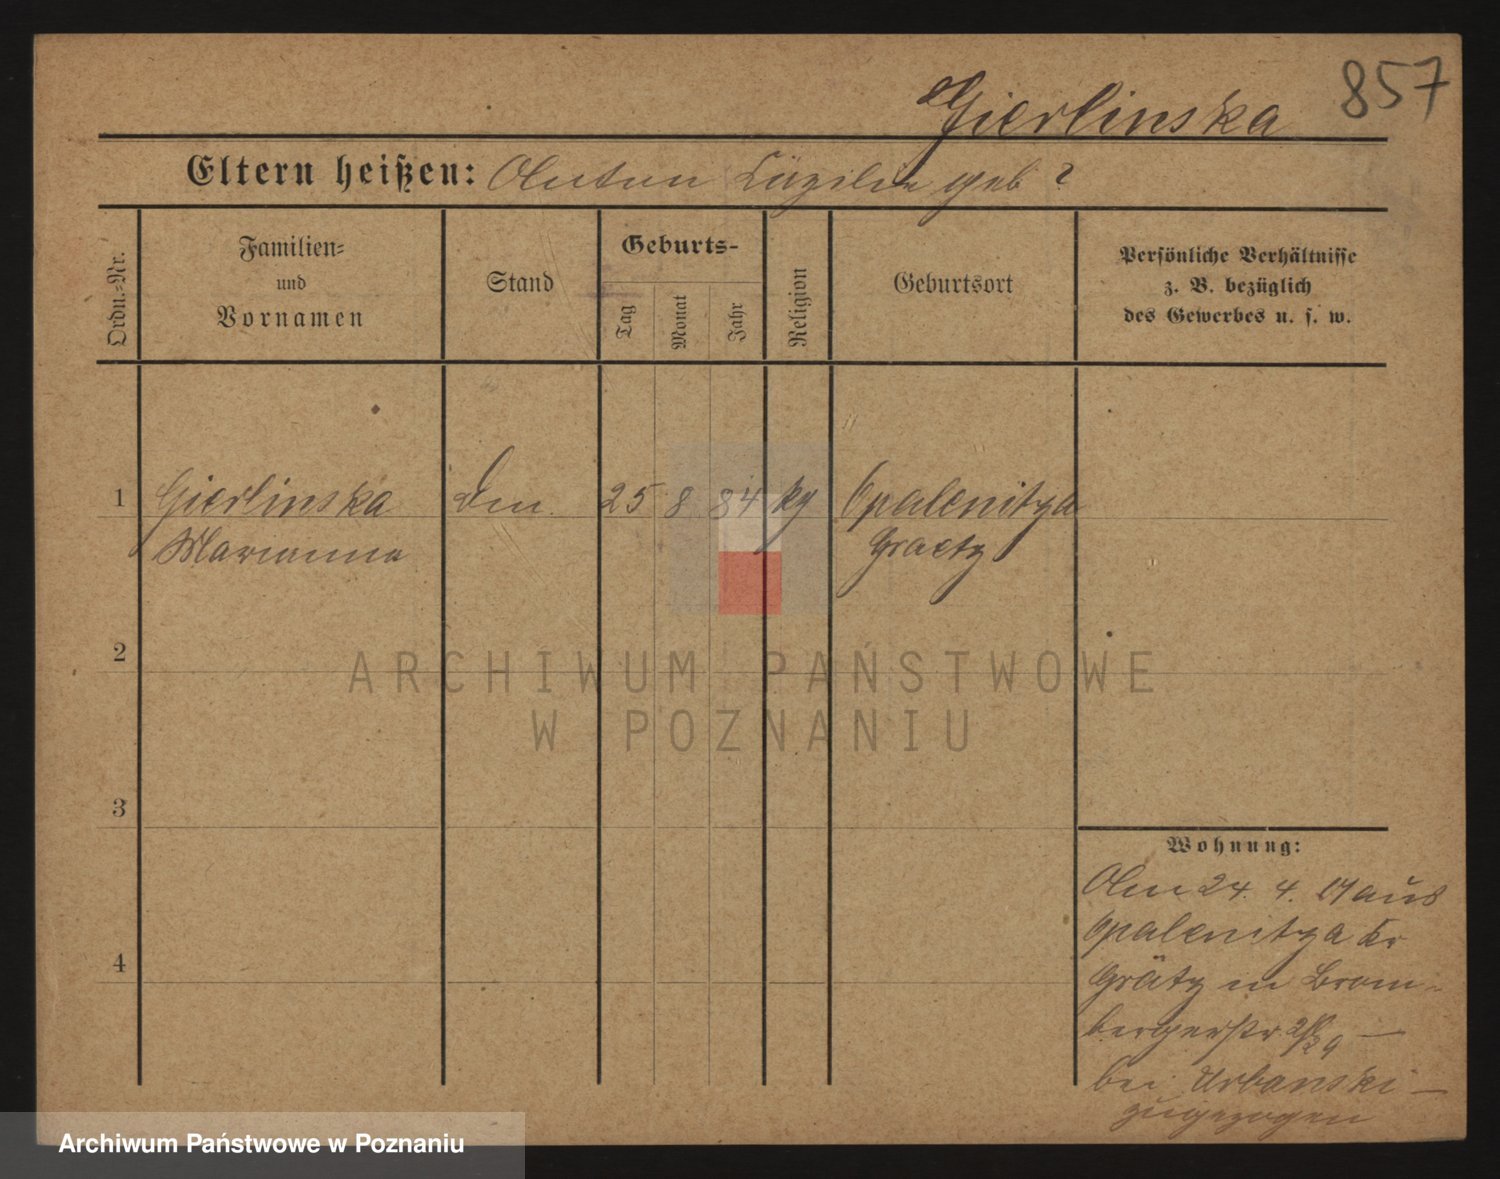 857
Gierlinska
Eltern heißen: Anton Cäzilie geb ?
Ordn.-Nr.
Familien-
und
Vornamen
Stand
Geburts-
Tag
Monat
Jahr
Religion
Geburtsort
Persönliche Verhältnisse
z. B. bezüglich
des Gewerbes u. s. w.
1 Gierlinska 25 8 84 kg Opalenitza
Marianna Graetz
2
3
4
Wohnung:
Am 24. 4. 17 aus
Opalenitza Kr
Grätz in Brom-
bergerstr
bei Urbanski
zugezogen
ARCHIWUM PAŃSTWOWE
W POZNANIU
Archiwum Państwowe w Poznaniu